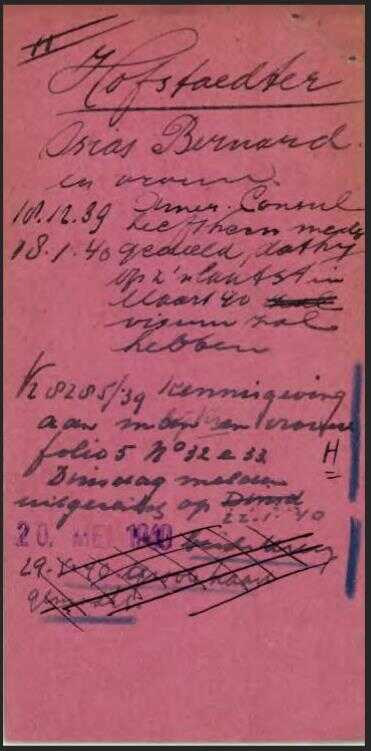 Hofstaedter
Osias Bernard
en vrouw.
18.12.39 Amer. Consul
heeft hem mede
18.1.40 gedeeld, dat hij
op z'n laatst in
Maart 40
visum zal
hebben
V2 8285/39 Kennisgeving
aan man en vrouw
folio 5 No 32 a 33
H
Dinsdag melden
uitgereikt op
22.1.40
20. MEI 1940
29.